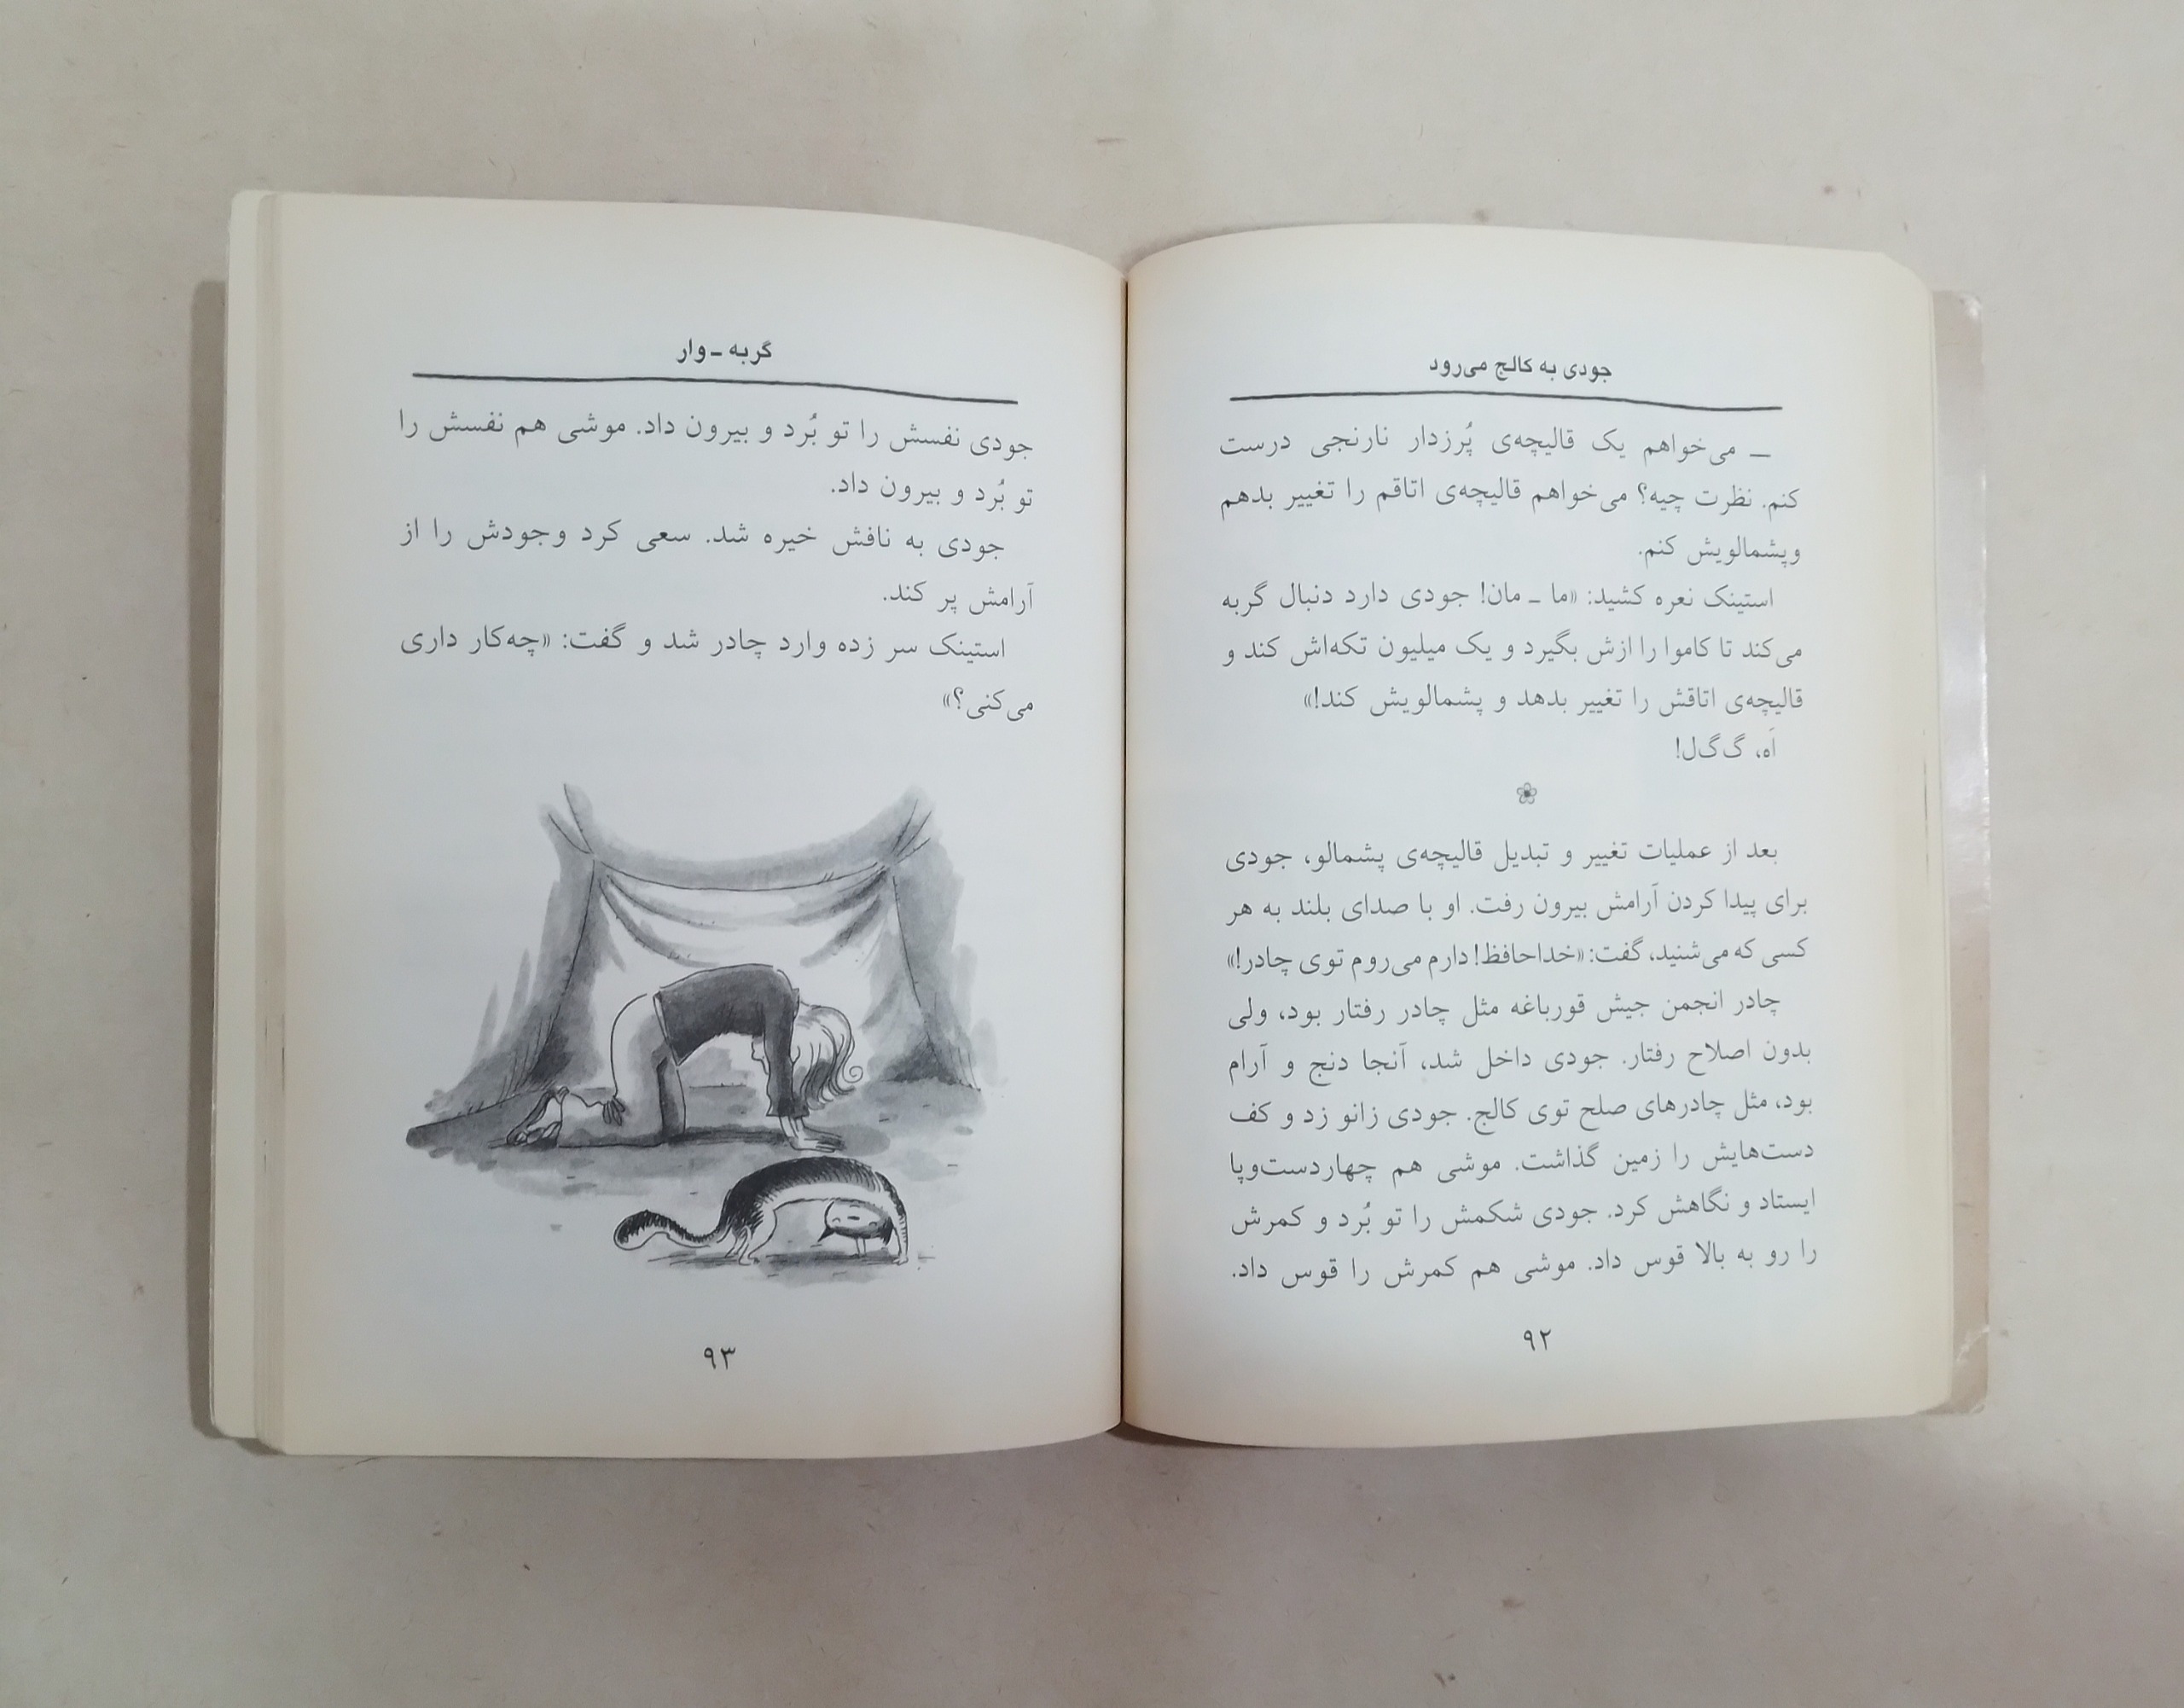 جودی به کالج می‌رود
ـ می‌خواهم یک قالیچه‌ی پُرزدار نارنجی درست
کنم. نظرت چیه؟ می‌خواهم قالیچه‌ی اتاقم را تغییر بدهم
وپشمالویش کنم.
استینک نعره کشید: «ما ـ مان! جودی دارد دنبال گربه
می‌کند تا کاموا را ازش بگیرد و یک میلیون تکه‌اش کند و
قالیچه‌ی اتاقش را تغییر بدهد و پشمالویش کند!»
اَه، گ‌گ‌ل!
بعد از عملیات تغییر و تبدیل قالیچه‌ی پشمالو، جودی
برای پیدا کردن آرامش بیرون رفت. او با صدای بلند به هر
کسی که می‌شنید، گفت: «خداحافظ! دارم می‌روم توی چادر!»
چادر انجمن جیش قورباغه مثل چادر رفتار بود، ولی
بدون اصلاح رفتار. جودی داخل شد، آنجا دنج و آرام
بود، مثل چادرهای صلح توی کالج. جودی زانو زد و کف
دست‌هایش را زمین گذاشت. موشی هم چهاردست‌وپا
ایستاد و نگاهش کرد. جودی شکمش را تو بُرد و کمرش
را رو به بالا قوس داد. موشی هم کمرش را قوس داد.
۹۲
گربه ـ وار
جودی نفسش را تو بُرد و بیرون داد. موشی هم نفسش را
تو بُرد و بیرون داد.
جودی به نافش خیره شد. سعی کرد وجودش را از
آرامش پر کند.
استینک سر زده وارد چادر شد و گفت: «چه‌کار داری
می‌کنی؟»
۹۳